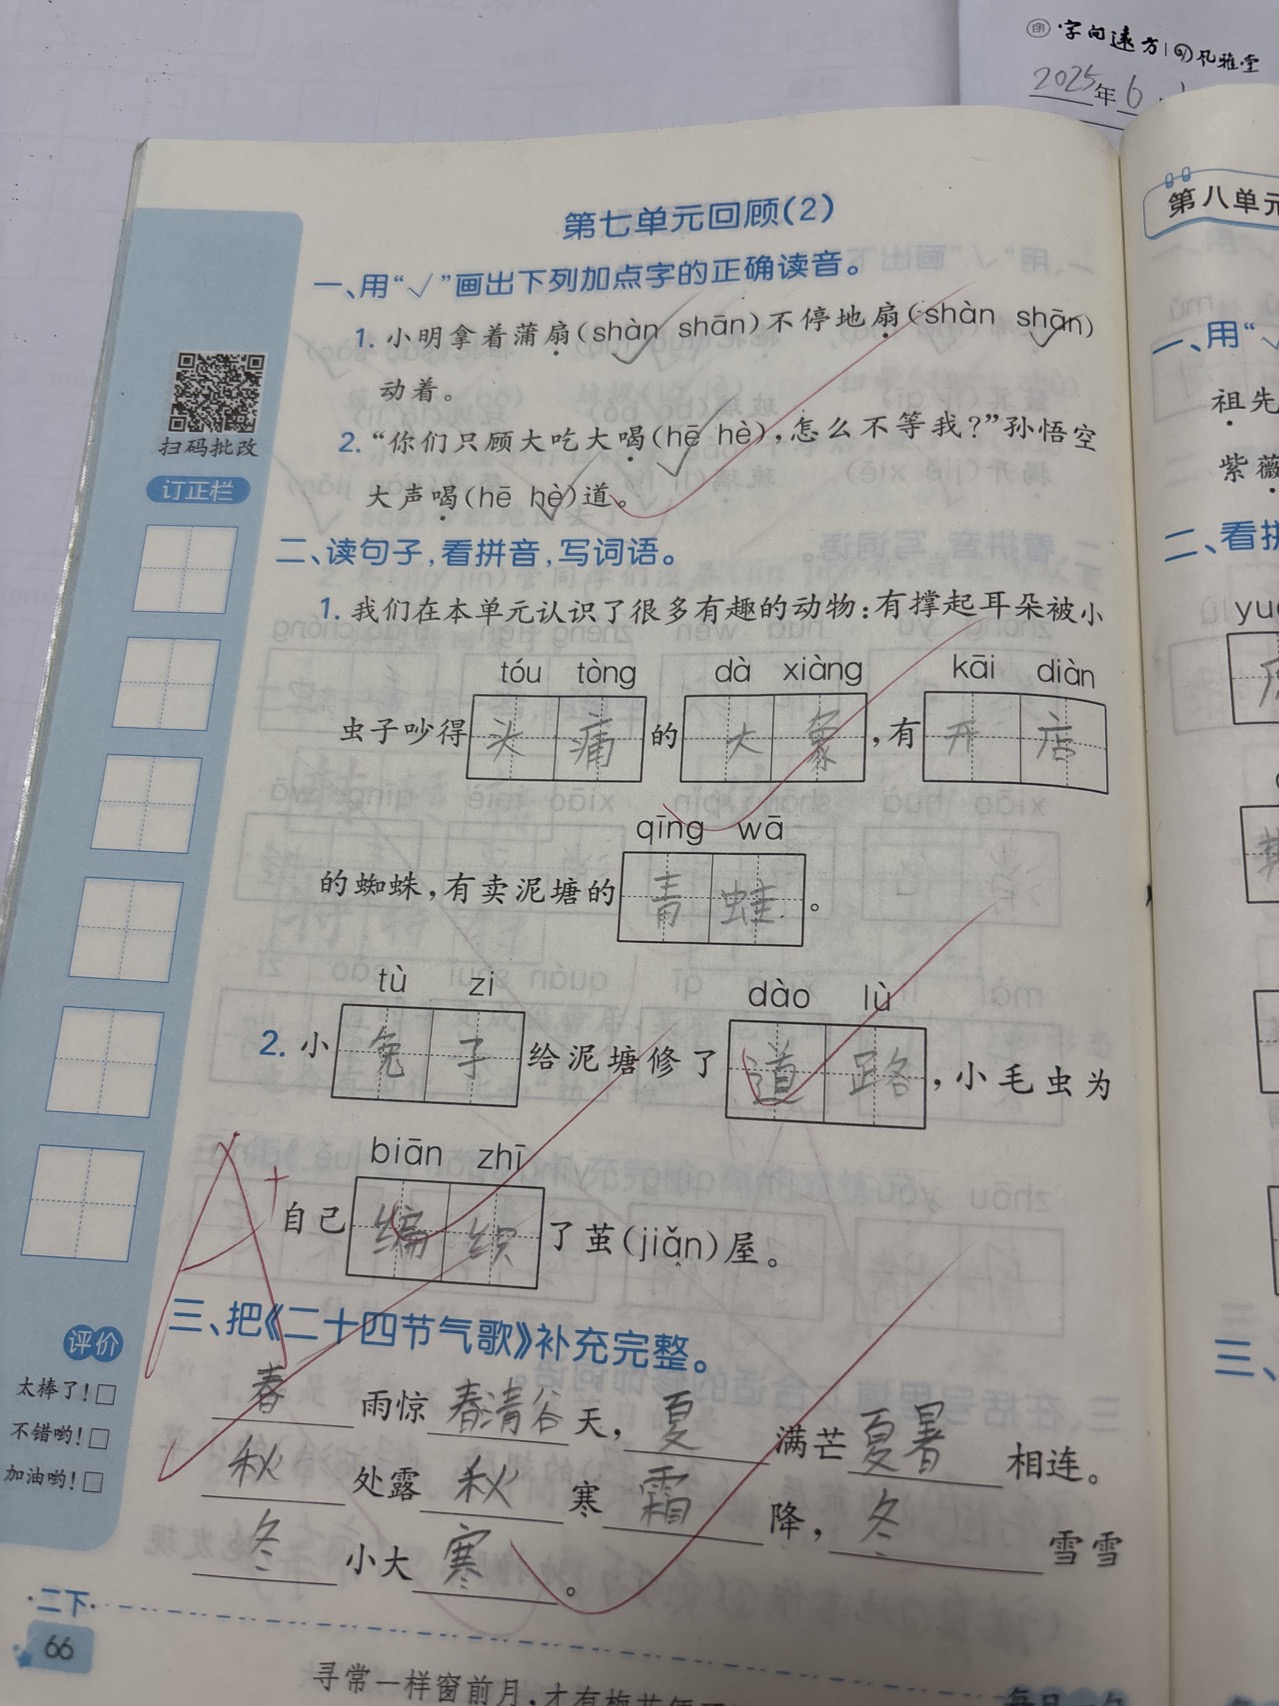 字间远方
凡雅堂
2025年6
第七单元回顾(2)
一、用“√”画出下列加点字的正确读音。
1. 小明拿着蒲扇(shàn shān)不停地扇(shàn shān)
动着。
2. “你们只顾大吃大喝(hē hè),怎么不等我?”孙悟空
大声喝(hē hè)道。
二、读句子,看拼音,写词语。
1. 我们在本单元认识了很多有趣的动物:有撑起耳朵被小
tóu tòng dà xiàng kāi diàn
虫子吵得头痛的大象,有开店
qīng wā
的蜘蛛,有卖泥塘的青蛙。
tù zi dào lù
2. 小兔子给泥塘修了道路,小毛虫为
biān zhī
自己编织了茧(jiǎn)屋。
三、把《二十四节气歌》补充完整。
春雨惊春清谷天,夏满芒夏暑相连。
秋处露秋寒霜降,冬雪雪
冬小大寒。
扫码批改
订正栏
A+
评价
太棒了!□
不错哟!□
加油哟!□
·二下·
66
寻常一样窗前月,才有梅花便
第八单元
一、用“√
祖先
紫薇
二、看拼
三、